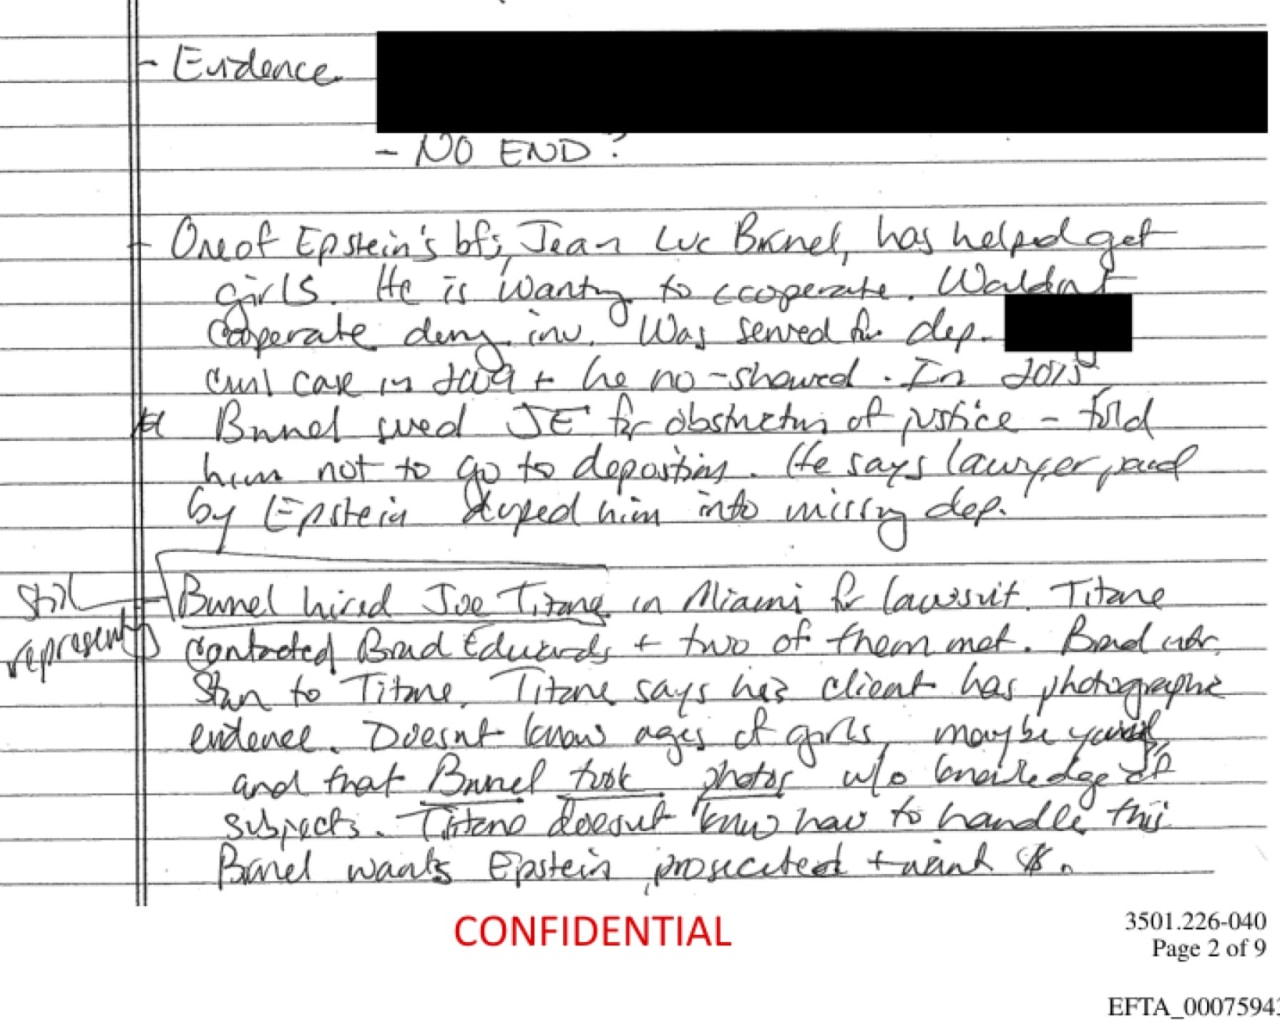 - Evidence
- NO END?
- One of Epstein's bfs, Jean Luc Brunel, has helped get
girls. He is wanting to cooperate. Wouldn't
cooperate during inv. Was served for dep.
civil case in 2009 + he no-showed. In 2015
Brunel sued JE for obstruction of justice - told
him not to go to deposition. He says lawyer, paid
by Epstein duped him into missing dep.
Still
representg
- Brunel hired Joe Titone in Miami for lawsuit. Titone
contacted Brad Edwards + two of them met. Brad intr.
Stan to Titone. Titone says his client has photographic
evidence. Doesn't know ages of girls, maybe young,
and that Brunel took photos w/o knowledge of
subjects. Titone doesn't know how to handle this
Brunel wants Epstein prosecuted + want $.
CONFIDENTIAL
3501.226-040
Page 2 of 9